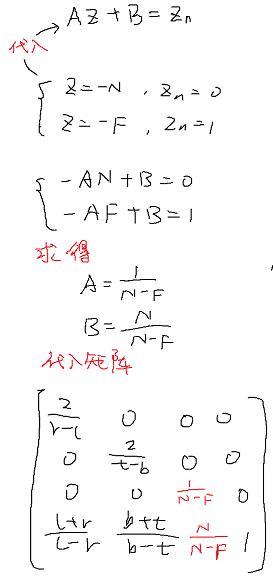 AZ + B = Zn
代入
{ Z = -N , Zn = 0
Z = -F , Zn = 1
{ -AN + B = 0
-AF + B = 1
求得
A = 1/(N-F)
B = N/(N-F)
代入矩阵
[ 2/(r-l) 0 0 0
0 2/(t-b) 0 0
0 0 1/(N-F) 0
(l+r)/(l-r) (b+t)/(b-t) N/(N-F) 1 ]